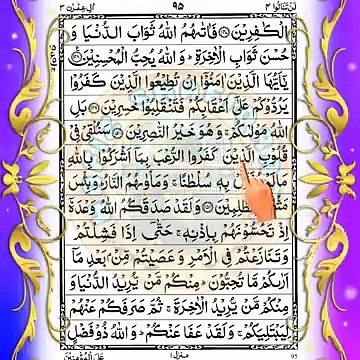 لن تنالوا ۴ ۹۵ اٰل عمرٰن ۳
الْكٰفِرِيْنَ فَاٰتٰىهُمُ اللّٰهُ ثَوَابَ الدُّنْيَا وَ
حُسْنَ ثَوَابِ الْاٰخِرَةِ وَاللّٰهُ يُحِبُّ الْمُحْسِنِيْنَ
يٰۤاَيُّهَا الَّذِيْنَ اٰمَنُوْۤا اِنْ تُطِيْعُوا الَّذِيْنَ كَفَرُوْا
يَرُدُّوْكُمْ عَلٰۤى اَعْقَابِكُمْ فَتَنْقَلِبُوْا خٰسِرِيْنَ بَلِ
اللّٰهُ مَوْلٰىكُمْ وَهُوَ خَيْرُ النّٰصِرِيْنَ سَنُلْقِيْ فِيْ
قُلُوْبِ الَّذِيْنَ كَفَرُوا الرُّعْبَ بِمَاۤ اَشْرَكُوْا بِاللّٰهِ
مَا لَمْ بِهٖ سُلْطٰنًا وَمَاْوٰىهُمُ النَّارُ وَبِئْسَ
الظّٰلِمِيْنَ وَلَقَدْ صَدَقَكُمُ اللّٰهُ وَعْدَهٗۤ
اِذْ تَحُسُّوْنَهُمْ بِاِذْنِهٖ حَتّٰۤى اِذَا فَشِلْتُمْ
وَتَنَازَعْتُمْ فِي الْاَمْرِ وَعَصَيْتُمْ مِّنْۢ بَعْدِ مَاۤ
اَرٰىكُمْ مَّا تُحِبُّوْنَ مِنْكُمْ مَّنْ يُّرِيْدُ الدُّنْيَا وَ
مِنْكُمْ مَّنْ يُّرِيْدُ الْاٰخِرَةَ ثُمَّ صَرَفَكُمْ عَنْهُمْ
لِيَبْتَلِيَكُمْ وَلَقَدْ عَفَا عَنْكُمْ وَاللّٰهُ ذُوْ فَضْلٍ
منزل ۱ 95